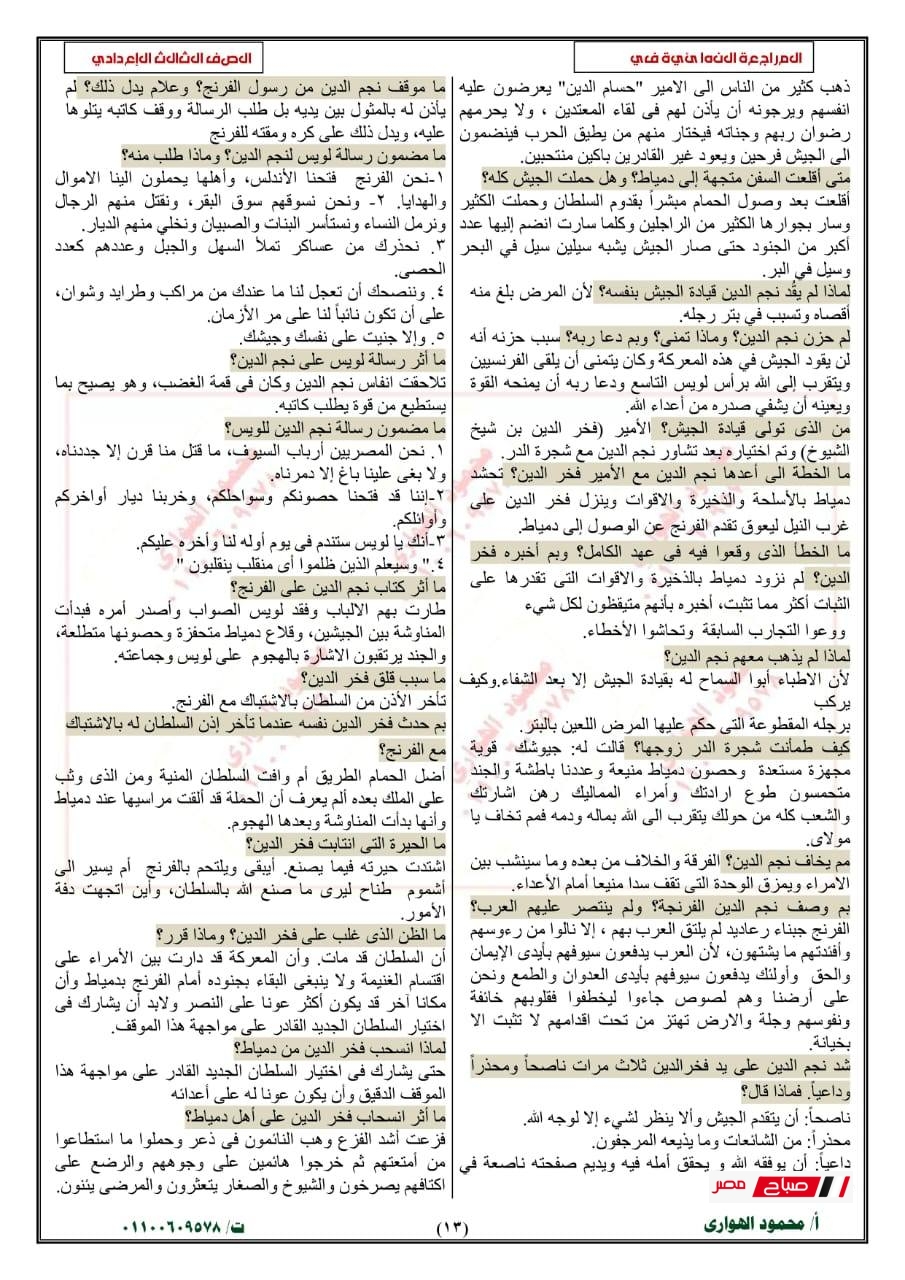 المراجعة النهائية في
الصف الثالث الإعدادي
ذهب كثير من الناس الى الامير "حسام الدين" يعرضون عليه
انفسهم ويرجونه أن يأذن لهم فى لقاء المعتدين ، ولا يحرمهم
رضوان ربهم وجناته فيختار منهم من يطيق الحرب فينضمون
الى الجيش فرحين ويعود غير القادرين باكين منتحبين.
متى أقلعت السفن متجهة إلى دمياط؟ وهل حملت الجيش كله؟
أقلعت بعد وصول الحمام مبشراً بقدوم السلطان وحملت الكثير
وسار بجوارها الكثير من الراجلين وكلما سارت انضم إليها عدد
أكبر من الجنود حتى صار الجيش يشبه سيلين سيل في البحر
وسيل في البر.
لماذا لم يقُد نجم الدين قيادة الجيش بنفسه؟ لأن المرض بلغ منه
أقصاه وتسبب في بتر رجله.
لم حزن نجم الدين؟ وماذا تمنى؟ وبم دعا ربه؟ سبب حزنه أنه
لن يقود الجيش في هذه المعركة وكان يتمنى أن يلقى الفرنسيين
ويتقرب إلى الله برأس لويس التاسع ودعا ربه أن يمنحه القوة
ويعينه أن يشفي صدره من أعداء الله.
من الذى تولى قيادة الجيش؟ الأمير (فخر الدين بن شيخ
الشيوخ) وتم اختياره بعد تشاور نجم الدين مع شجرة الدر.
ما الخطة الى أعدها نجم الدين مع الأمير فخر الدين؟ تحشد
دمياط بالأسلحة والذخيرة والاقوات وينزل فخر الدين على
غرب النيل ليعوق تقدم الفرنج عن الوصول إلى دمياط.
ما الخطأ الذى وقعوا فيه فى عهد الكامل؟ وبم أخبره فخر
الدين؟ لم نزود دمياط بالذخيرة والاقوات التى تقدرها على
الثبات أكثر مما تثبت، أخبره بأنهم متيقظون لكل شيء
ووعوا التجارب السابقة وتحاشوا الأخطاء.
لماذا لم يذهب معهم نجم الدين؟
لأن الاطباء أبوا السماح له بقيادة الجيش إلا بعد الشفاء.وكيف
يركب
برجله المقطوعة التى حكم عليها المرض اللعين بالبتر.
كيف طمأنت شجرة الدر زوجها؟ قالت له: جيوشك قوية
مجهزة مستعدة وحصون دمياط منيعة وعددنا باطشة والجند
متحمسون طوع ارادتك وأمراء المماليك رهن اشارتك
والشعب كله من حولك يتقرب الى الله بماله ودمه فمم تخاف يا
مولاى.
مم يخاف نجم الدين؟ الفرقة والخلاف من بعده وما سينشب بين
الامراء ويمزق الوحدة التى تقف سدا منيعا أمام الأعداء.
بم وصف نجم الدين الفرنجة؟ ولم ينتصر عليهم العرب؟
الفرنج جبناء رعاديد لم يلتق العرب بهم ، إلا نالوا من رءوسهم
وأفئدتهم ما يشتهون، لأن العرب يدفعون سيوفهم بأيدى الإيمان
والحق وأولئك يدفعون سيوفهم بأيدى العدوان والطمع ونحن
على أرضنا وهم لصوص جاءوا ليخطفوا فقلوبهم خائفة
ونفوسهم وجلة والارض تهتز من تحت اقدامهم لا تثبت الا
بخيانة.
شد نجم الدين على يد فخرالدين ثلاث مرات ناصحاً ومحذراً
وداعياً. فماذا قال؟
ناصحاً: أن يتقدم الجيش وألا ينظر لشيء إلا لوجه الله.
محذراً: من الشائعات وما يذيعه المرجفون.
داعياً: أن يوفقه الله و يحقق أمله فيه ويديم صفحته ناصعة في
ما موقف نجم الدين من رسول الفرنج؟ وعلام يدل ذلك؟ لم
يأذن له بالمثول بين يديه بل طلب الرسالة ووقف كاتبه يتلوها
عليه، ويدل ذلك على كره ومقته للفرنج
ما مضمون رسالة لويس لنجم الدين؟ وماذا طلب منه؟
١-نحن الفرنج فتحنا الأندلس، وأهلها يحملون الينا الاموال
والهدايا. ٢- ونحن نسوقهم سوق البقر، ونقتل منهم الرجال
ونرمل النساء ونستأسر البنات والصبيان ونخلي منهم الديار.
٣. نحذرك من عساكر تملأ السهل والجبل وعددهم كعدد
الحصى.
٤. وننصحك أن تعجل لنا ما عندك من مراكب وطرايد وشوان،
على أن تكون نائباً لنا على مر الأزمان.
٥. وإلا جنيت على نفسك وجيشك.
ما أثر رسالة لويس على نجم الدين؟
تلاحقت انفاس نجم الدين وكان فى قمة الغضب، وهو يصيح بما
يستطيع من قوة يطلب كاتبه.
ما مضمون رسالة نجم الدين للويس؟
١. نحن المصريين أرباب السيوف، ما قتل منا قرن إلا جددناه،
ولا بغى علينا باغ إلا دمرناه.
٢-إننا قد فتحنا حصونكم وسواحلكم، وخربنا ديار أواخركم
وأوائلكم.
٣-أنك يا لويس ستندم فى يوم أوله لنا وأخره عليكم.
٤." وسيعلم الذين ظلموا أى منقلب ينقلبون "
ما أثر كتاب نجم الدين على الفرنج؟
طارت بهم الالباب وفقد لويس الصواب وأصدر أمره فبدأت
المناوشة بين الجيشين، وقلاع دمياط متحفزة وحصونها متطلعة،
والجند يرتقبون الاشارة بالهجوم على لويس وجماعته.
ما سبب قلق فخر الدين؟
تأخر الأذن من السلطان بالاشتباك مع الفرنج.
بم حدث فخر الدين نفسه عندما تأخر إذن السلطان له بالاشتباك
مع الفرنج؟
أضل الحمام الطريق أم وافت السلطان المنية ومن الذى وثب
على الملك بعده ألم يعرف أن الحملة قد ألقت مراسيها عند دمياط
وأنها بدأت المناوشة وبعدها الهجوم.
ما الحيرة التى انتابت فخر الدين؟
اشتدت حيرته فيما يصنع. أيبقى ويلتحم بالفرنج أم يسير الى
أشموم طناح ليرى ما صنع الله بالسلطان، وأين اتجهت دفة
الأمور.
ما الظن الذى غلب على فخر الدين؟ وماذا قرر؟
أن السلطان قد مات. وأن المعركة قد دارت بين الأمراء على
اقتسام الغنيمة ولا ينبغى البقاء بجنوده أمام الفرنج بدمياط وأن
مكانا آخر قد يكون أكثر عونا على النصر ولابد أن يشارك فى
اختيار السلطان الجديد القادر على مواجهة هذا الموقف.
لماذا انسحب فخر الدين من دمياط؟
حتى يشارك فى اختيار السلطان الجديد القادر على مواجهة هذا
الموقف الدقيق وأن يكون عونا له على أعدائه
ما أثر انسحاب فخر الدين على أهل دمياط؟
فزعت أشد الفزع وهب النائمون فى ذعر وحملوا ما استطاعوا
من أمتعتهم ثم خرجوا هائمين على وجوههم والرضع على
اكتافهم يصرخون والشيوخ والصغار يتعثرون والمرضى يئنون.
صباح مصر
أ/ محمود الهوارى
(١٣)
ت/ ٠١١٠٠٦٠٩٥٧٨